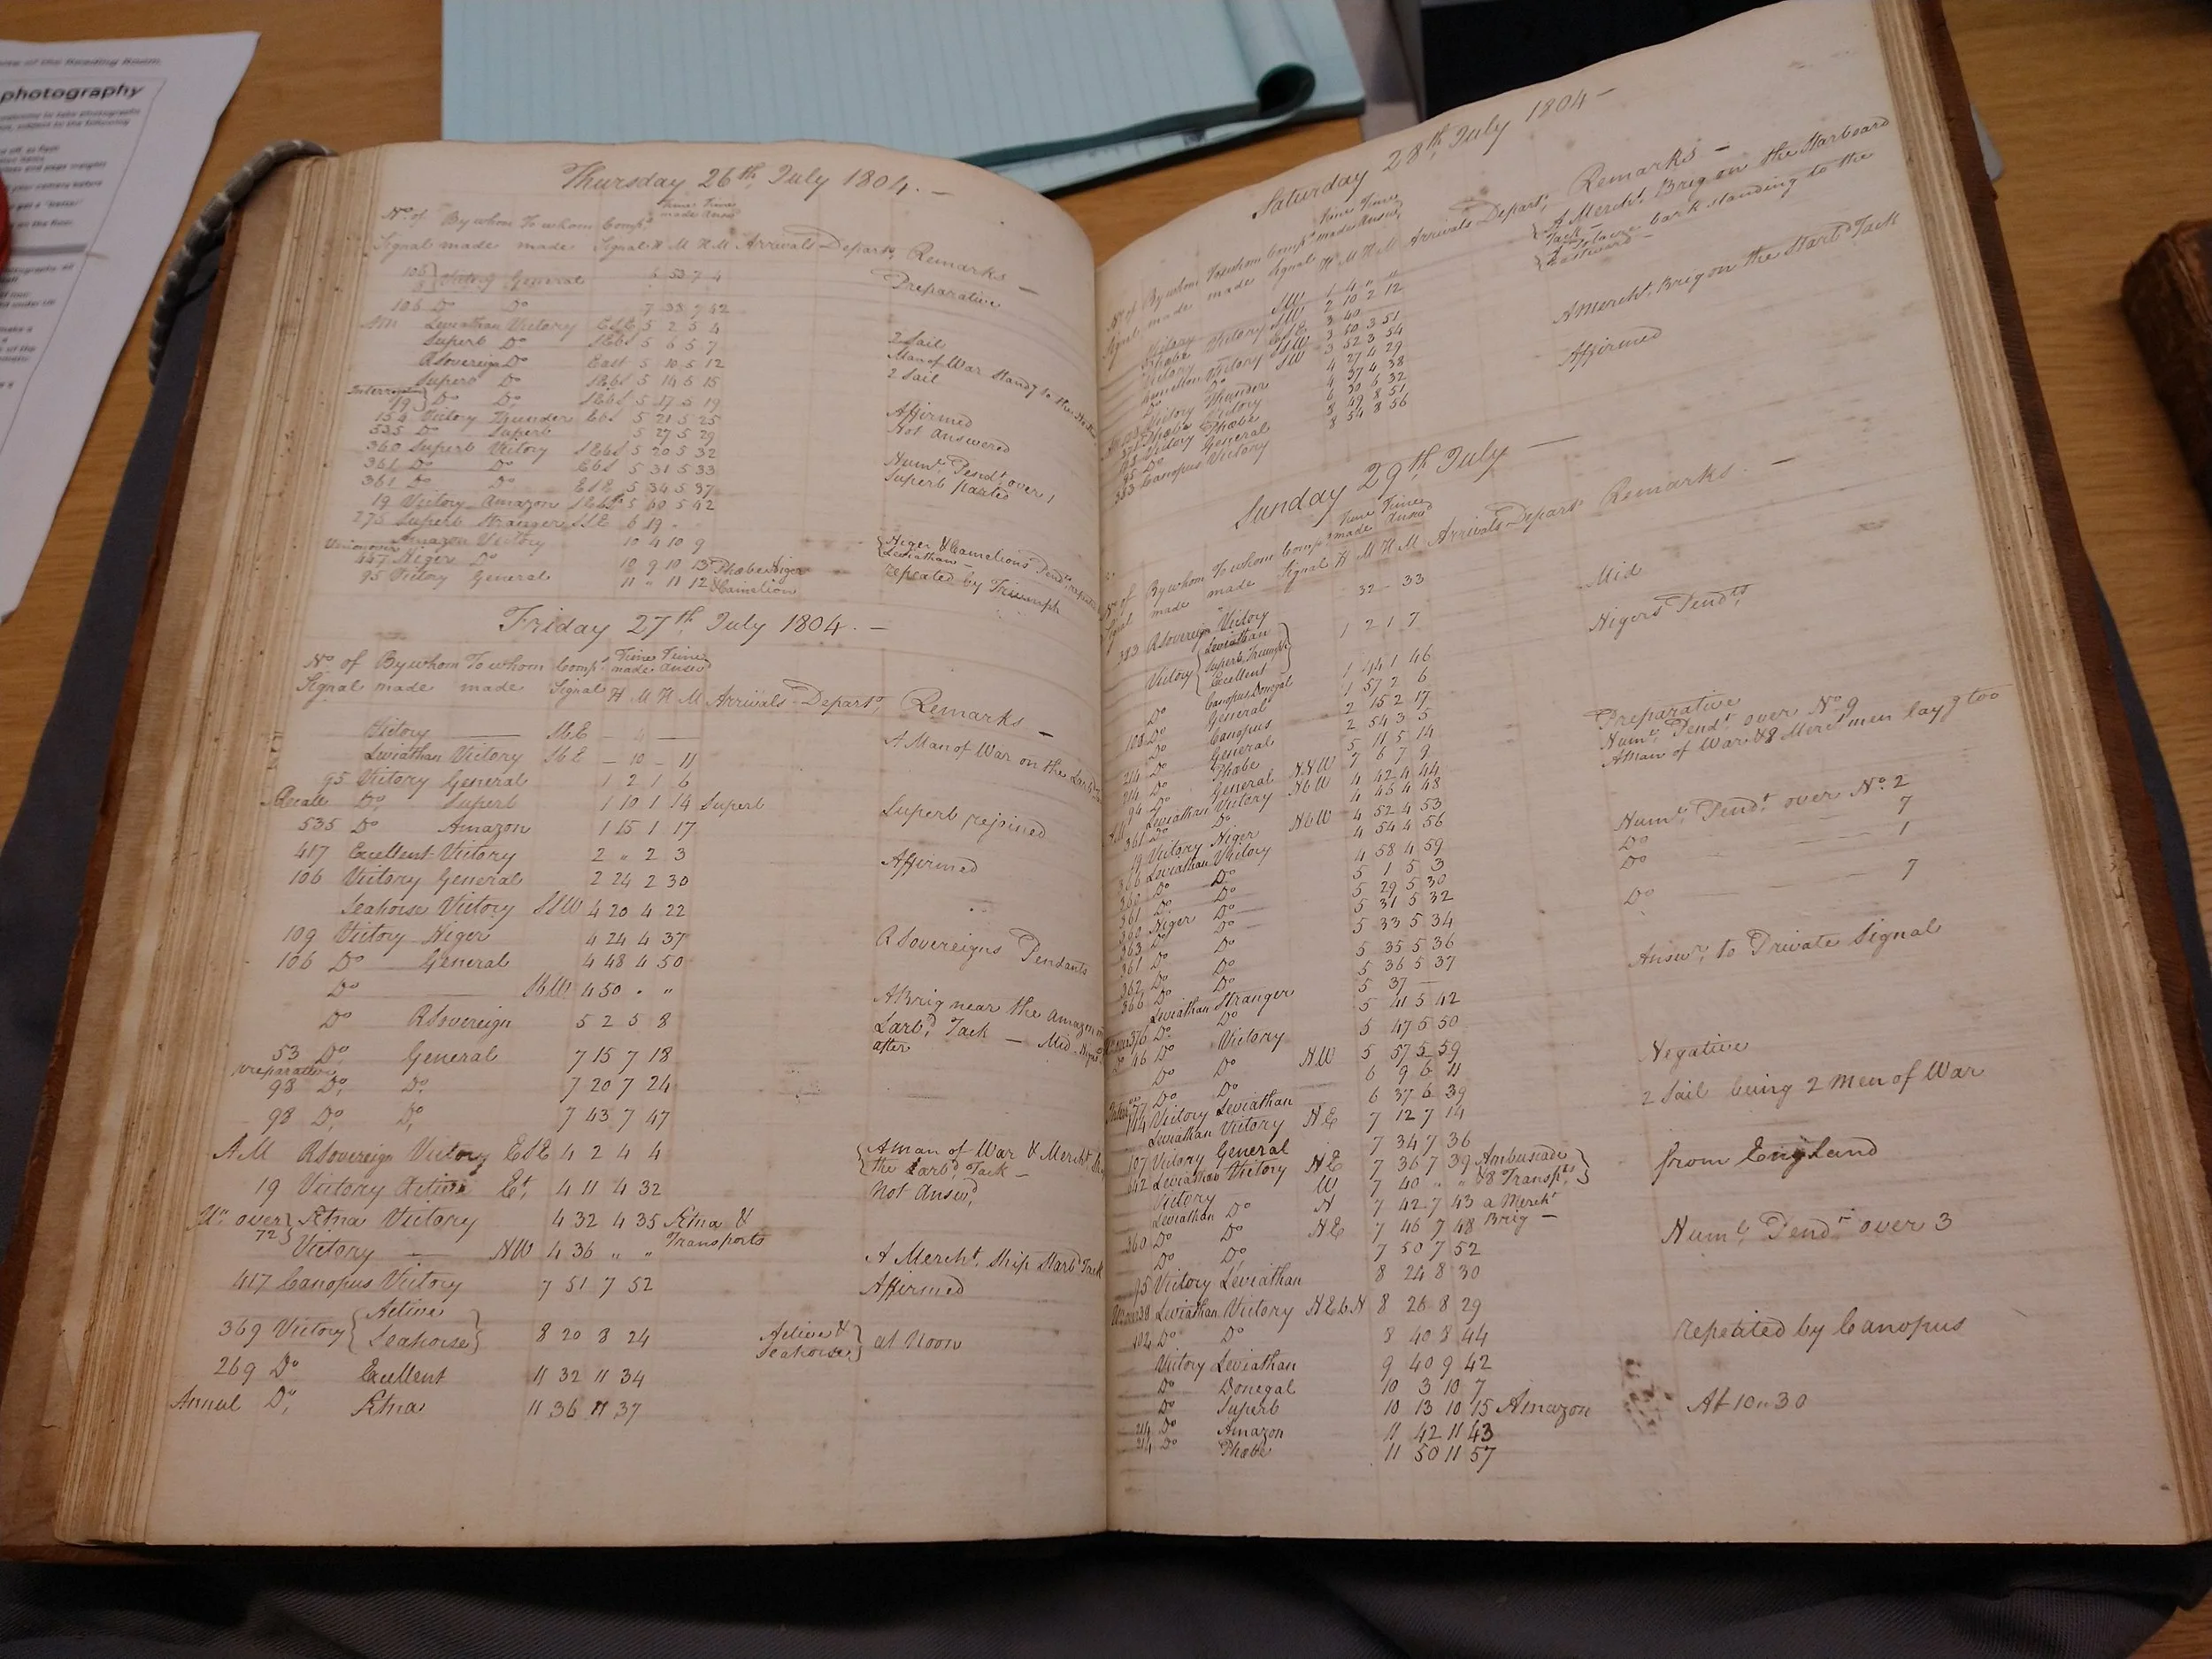 photography
Thursday 26th July 1804. —
No. of By whom To whom Comps. Time made Time Answd
Signal made made Signal H M H M Arrivals Depart. Remarks —
106 Victory General 6 53 7 4 Preparative
106 Do Do 7 38 7 52
AM Leviathan Victory ESE 5 2 5 4 2 Sail
Superb Do SEbS 5 6 5 7 Man of War Standg to the
RSovereign Do East 5 10 5 12 2 Sail
Superb Do SEbS 5 14 5 15
19 Do Do SEbS 5 17 5 19 Affirmed
154 Victory Thunder EbS 5 21 5 25 Not Answered
535 Do Superb 5 27 5 29
360 Superb Victory SEbS 5 20 5 32 Numl. Pendt. over 1
361 Do Do EbS 5 31 5 33 Superb parted
361 Do Do ESE 5 34 5 37
19 Victory Amazon 5 40 5 42
275 Superb Stranger SSE 6 19
Amazon Victory 10 4 10 9 Niger & Camelions Pendts
447 Niger Do 10 9 10 13 Phœbe Niger Leviathan —
95 Victory General 11 " 11 12 & Camelion repeated by Triumph
Friday 27th July 1804. —
No. of By whom To whom Comps. Time made Time Answd
Signal made made Signal H M H M Arrivals Depart. Remarks —
Victory — SbE — 4 —
Leviathan Victory SbE — 10 — 11 A Man of War on the Larbd
95 Victory General 1 2 1 6
Do Superb 1 10 1 14 Superb Superb rejoined
535 Do Amazon 1 15 1 17
417 Excellent Victory 2 " 2 3 Affirmed
106 Victory General 2 24 2 30
Seahorse Victory SSW 4 20 4 22
109 Victory Niger 4 24 4 37 RSovereigns Pendants
106 Do General 4 48 4 50
Do SbW 4 50 . " A Brig near the Amazon
Do RSovereign 5 2 5 8 Larbd. Tack — Mid
53 Do General 7 15 7 18 after
preparative
98 Do Do 7 20 7 24
98 Do Do 7 43 7 47
AM RSovereign Victory ESE 4 2 4 4 A man of War & Mercht
the Larbd. Tack —
19 Victory Active Et. 4 11 4 32 Not Answd.
Un. over 72 Ætna Victory 4 32 4 35 Ætna & Transports
Victory — NW 4 36 " " A Mercht. Ship Starbd Tack
417 Canopus Victory 7 51 7 52 Affirmed
369 Victory Active Seahorse 8 20 8 24 Active & Seahorse at Noon
269 Do Excellent 11 32 11 34
Annul Do. Ætna 11 36 11 37
Saturday 28th July 1804 —
No. of By whom To whom Comps. Time made Time Answd
Signal made made Signal H M H M Arrivals Depart. Remarks —
Victory SW 1 4 " " A Mercht. Brig on the Starboard
Tack —
Phœbe Victory SW 2 10 2 12 bark standing to the
Victory ESE 3 40 Eastward —
Camelion Victory SSW 3 50 3 51 A Mercht. Brig on the Starbd Tack
Do SW 3 52 3 54
Do Thunder 4 27 4 29 Affirmed
Phœbe Victory 4 37 4 38
Victory Phœbe 6 30 6 32
95 Do General 8 49 8 51
383 Canopus Victory 8 54 8 56
Sunday 29th July —
No. of By whom To whom Comps. Time made Time Answd
Signal made made Signal H M H M Arrivals Depart. Remarks —
383 RSovereign Victory 32 — 33 Mid
Victory Leviathan Superb, Triumph Excellent 1 2 1 7 Nigers Pendts.
Do Canopus Donegal 1 44 1 46
108 Do General 1 57 2 6
Do Canopus 2 15 2 17 Preparative
214 Do General 2 54 3 5 Numl. Pendt. over No. 9
214 Do Phœbe 5 11 5 14 A man of War & 8 Merctmen layg too
94 Do General 7 6 7 9
AM Leviathan Victory NNW 4 42 4 44
361 Do Do NbW 4 45 4 48
19 Victory Niger 4 52 4 53 Numl. Pendt. over No. 2
366 Leviathan Victory NbW 4 54 4 56 Do — — 7
360 Do Do 4 58 4 59 Do — — 1
361 Do Do 5 1 5 3
360 Niger Do 5 29 5 30 Do — — 7
363 Do Do 5 31 5 32
361 Do Do 5 33 5 34
362 Do Do 5 35 5 36 Answr. to Private Signal
366 Do Do 5 36 5 37
Leviathan Stranger 5 37 —
376 Do Do 5 41 5 42
Do 46 Do Victory 5 47 5 50
Do Do NW 5 57 5 59 Negative
Do Do 6 9 6 11
Victory Leviathan 6 37 6 39 2 Sail being 2 Men of War
Leviathan Victory NE 7 12 7 14
107 Victory General 7 34 7 36
642 Leviathan Victory NE 7 36 7 39 Ambuscade & 8 Transpts. from England
Victory W 7 40 " " a Mercht Brig —
Leviathan Do N 7 42 7 43
360 Do Do NE 7 46 7 48 Numl. Pendt. over 3
Do Do 7 50 7 52
95 Victory Leviathan 8 24 8 30
Leviathan Victory NEbN 8 26 8 29
Do Do 8 40 8 44 repeated by Canopus
Victory Leviathan 9 40 9 42
Do Donegal 10 3 10 7
Do Superb 10 13 10 15 Amazon At 10 " 30
214 Do Amazon 11 42 11 43
214 Do Phœbe 11 50 11 57